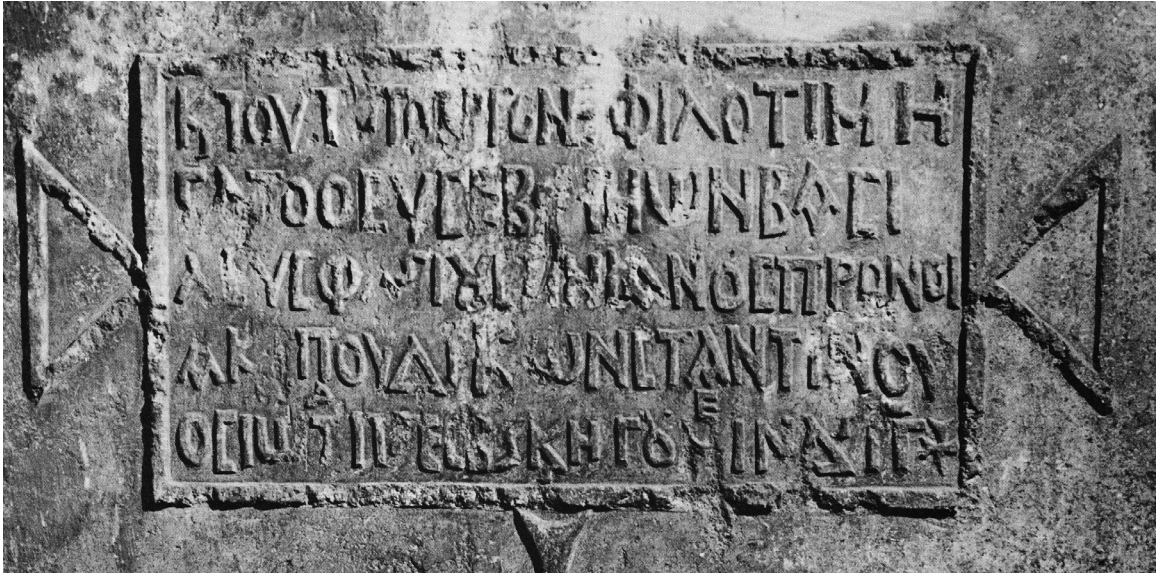 Κ ΤΟΥΤΟ ΤΟ ΕΡΓΟΝ ΕΦΙΛΟΤΙΜΗ
CΑΤΟ Ο ΕΥCΕΒ ΗΜΩΝ ΒΑCΙ
ΛΕΥC ΦΛ ΙΟΥCΤΙΝΙΑΝΟC ΠΡΟΝΟΙ
Α Κ CΠΟΥΔΗ ΚΩΝCΤΑΝΤΙΝΟΥ
ΟCΙΩΤ ΠΡΕCΒ Κ ΗΓΟΥΜΕ ΙΝΔ ΙΓ +